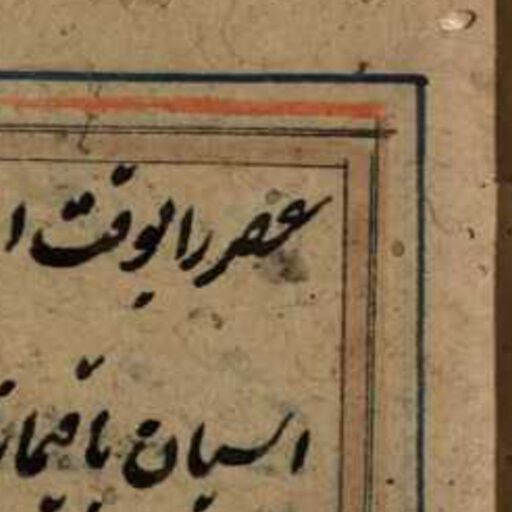 عصر را بوقت ا
ایشان با قیما